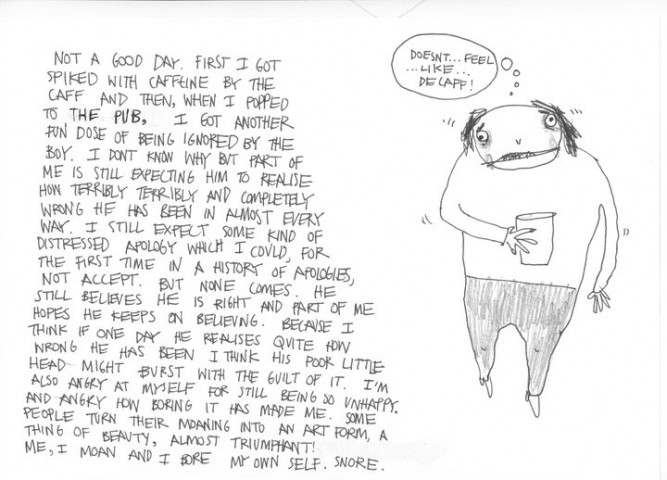 NOT A GOOD DAY. FIRST I GOT
SPIKED WITH CAFFEINE BY THE
CAFF AND THEN, WHEN I POPPED
TO THE PUB, I GOT ANOTHER
FUN DOSE OF BEING IGNORED BY THE
BOY. I DONT KNOW WHY BUT PART OF
ME IS STILL EXPECTING HIM TO REALISE
HOW TERRIBLY TERRIBLY AND COMPLETELY
WRONG HE HAS BEEN IN ALMOST EVERY
WAY. I STILL EXPECT SOME KIND OF
DISTRESSED APOLOGY WHICH I COULD, FOR
THE FIRST TIME IN A HISTORY OF APOLOGIES,
NOT ACCEPT. BUT NONE COMES. HE
STILL BELIEVES HE IS RIGHT AND PART OF ME
HOPES HE KEEPS ON BELIEVING. BECAUSE I
THINK IF ONE DAY HE REALISES QUITE HOW
WRONG HE HAS BEEN I THINK HIS POOR LITTLE
HEAD MIGHT BURST WITH THE GUILT OF IT. I'M
ALSO ANGRY AT MYSELF FOR STILL BEING SO UNHAPPY.
AND ANGRY HOW BORING IT HAS MADE ME. SOME
PEOPLE TURN THEIR MOANING INTO AN ART FORM, A
THING OF BEAUTY, ALMOST TRIUMPHANT!
ME, I MOAN AND I BORE MY OWN SELF. SNORE.
DOESNT... FEEL
...LIKE...
DECAFF!